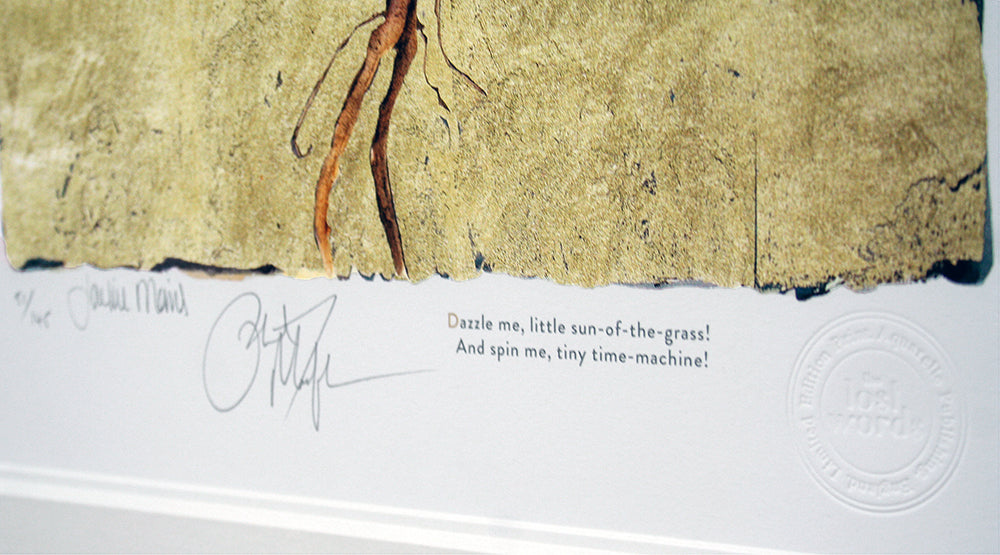 Jackie Morris
Dazzle me, little sun-of-the-grass!
And spin me, tiny time-machine!
the
lost
words
Limited Edition Print / Aquarelle Publishing, England